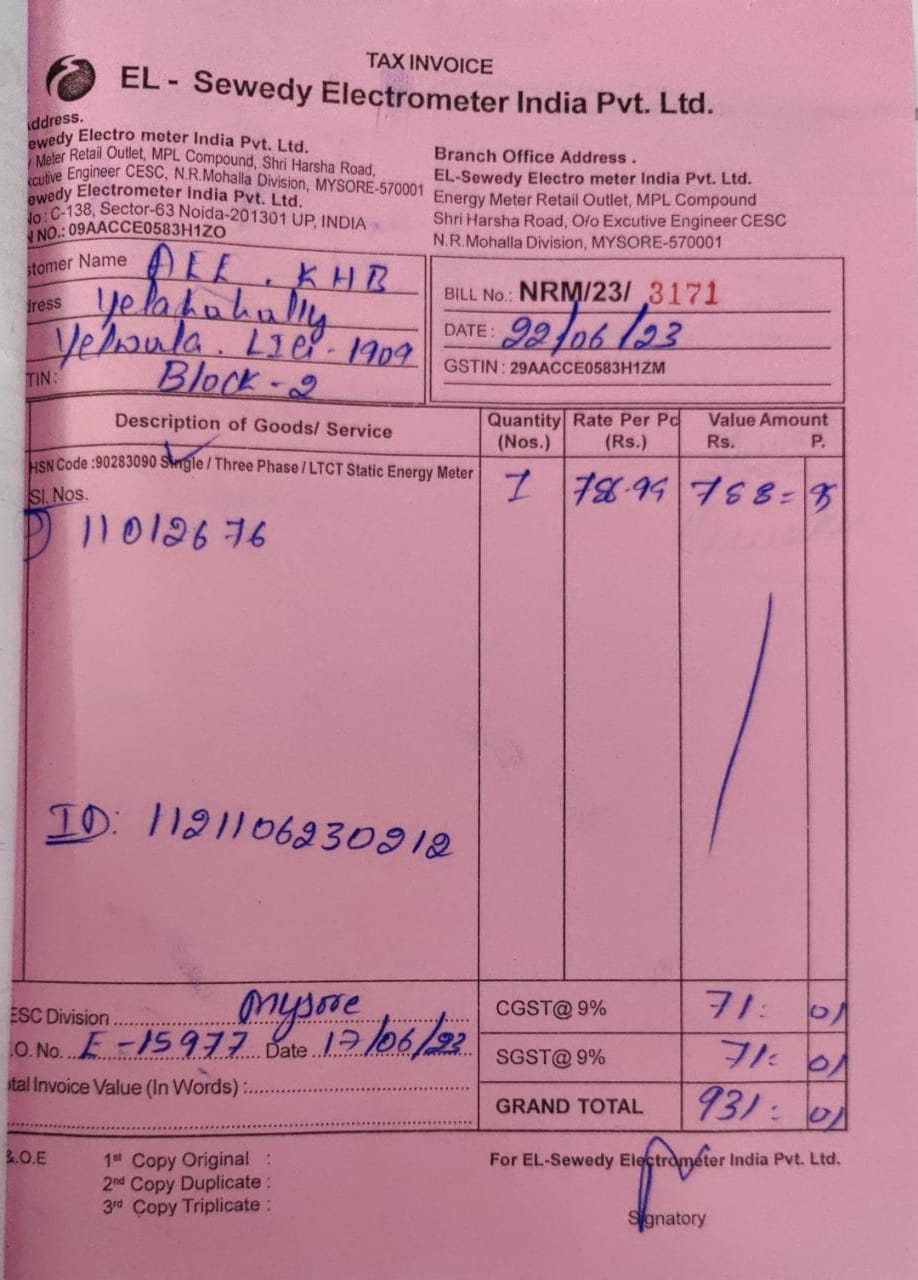 TAX INVOICE
EL - Sewedy Electrometer India Pvt. Ltd.
ddress.
ewedy Electro meter India Pvt. Ltd.
Meter Retail Outlet, MPL Compound, Shri Harsha Road,
cutive Engineer CESC, N.R.Mohalla Division, MYSORE-570001
ewedy Electrometer India Pvt. Ltd.
No : C-138, Sector-63 Noida-201301 UP, INDIA
NO.: 09AACCE0583H1ZO
Branch Office Address .
EL-Sewedy Electro meter India Pvt. Ltd.
Energy Meter Retail Outlet, MPL Compound
Shri Harsha Road, O/o Excutive Engineer CESC
N.R.Mohalla Division, MYSORE-570001
stomer Name AEE . KHB
ress Yelahahally
Yelwula . LIG - 1909
TIN : Block - 2
BILL No.: NRM/23/ 3171
DATE : 22/06/23
GSTIN : 29AACCE0583H1ZM
Description of Goods/ Service Quantity (Nos.) Rate Per Pc (Rs.) Value Amount Rs. P.
HSN Code :90283090 Single / Three Phase / LTCT Static Energy Meter
Sl. Nos. 1
11012676
ID: 1121106230212
ESC Division Mysore
.O. No. E-15977 Date 17/06/23
tal Invoice Value (In Words) :
CGST@ 9% 71: 01
SGST@ 9% 71: 01
GRAND TOTAL 931: 01
&.O.E
1st Copy Original :
2nd Copy Duplicate :
3rd Copy Triplicate :
For EL-Sewedy Electrometer India Pvt. Ltd.
Signatory